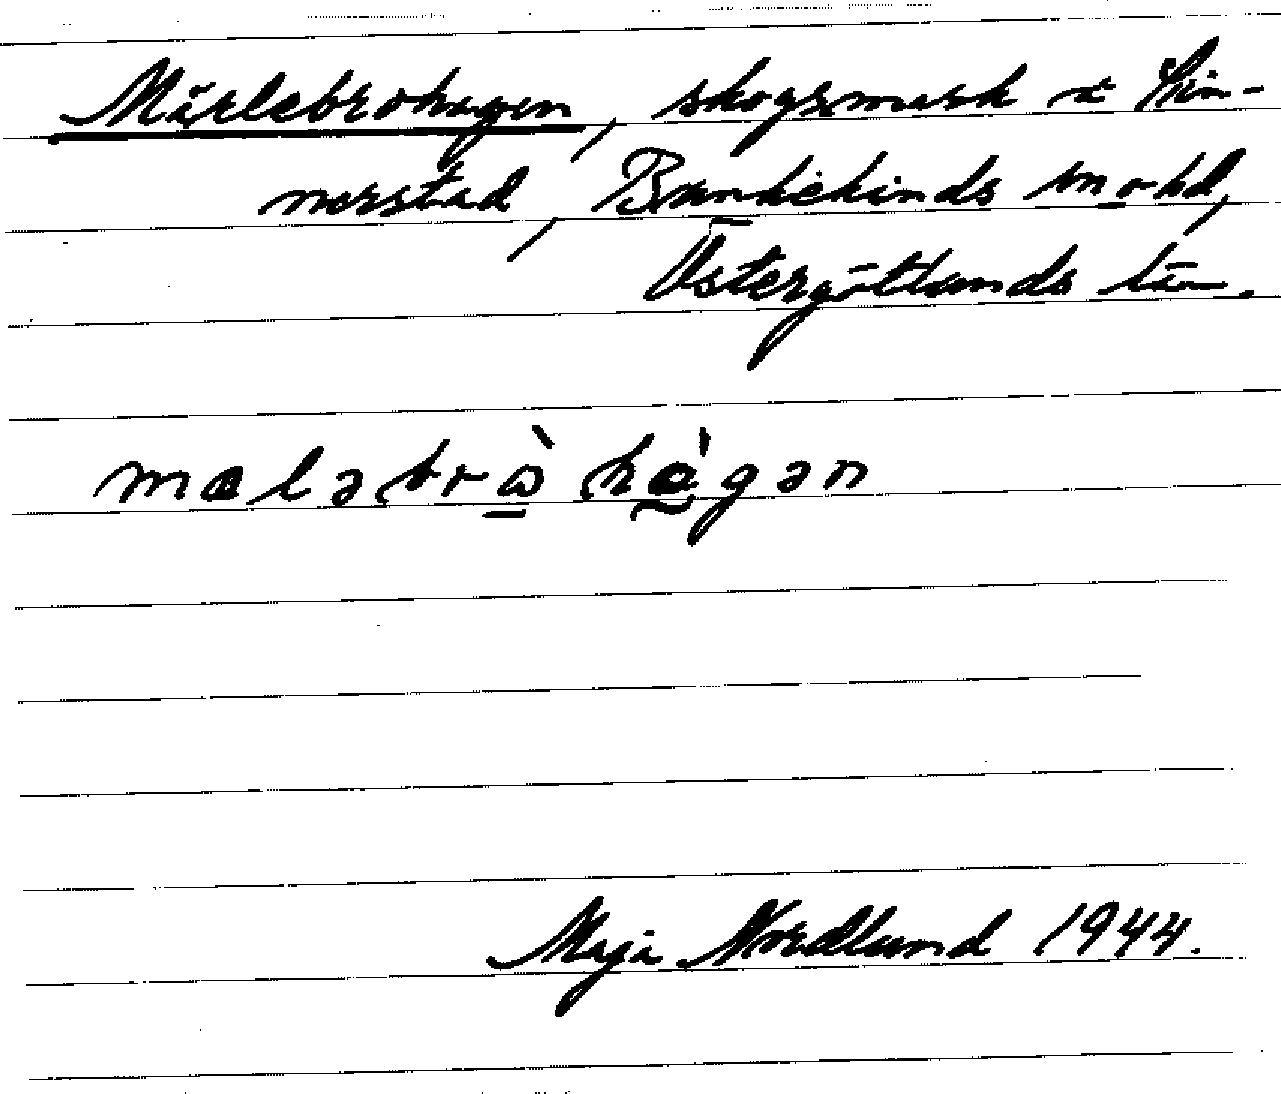 Märlebrohagen, skogsmark i Lin-
nerstad, Bankekinds sn o hd,
Östergötlands län.
mæləbrὼhàgən
Maja Nordlund 1944.